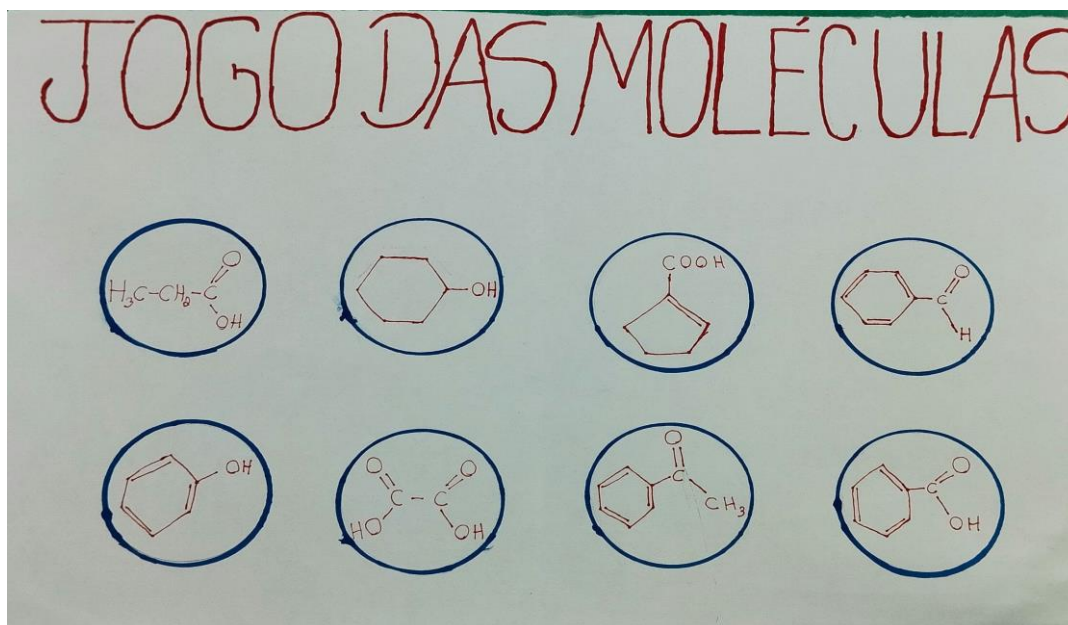 JOGO DAS MOLÉCULAS
O
H₃C-CH₂-C
OH
OH
COOH
O
C
H
OH
O O
C - C
HO OH
O
C
CH₃
O
C
OH